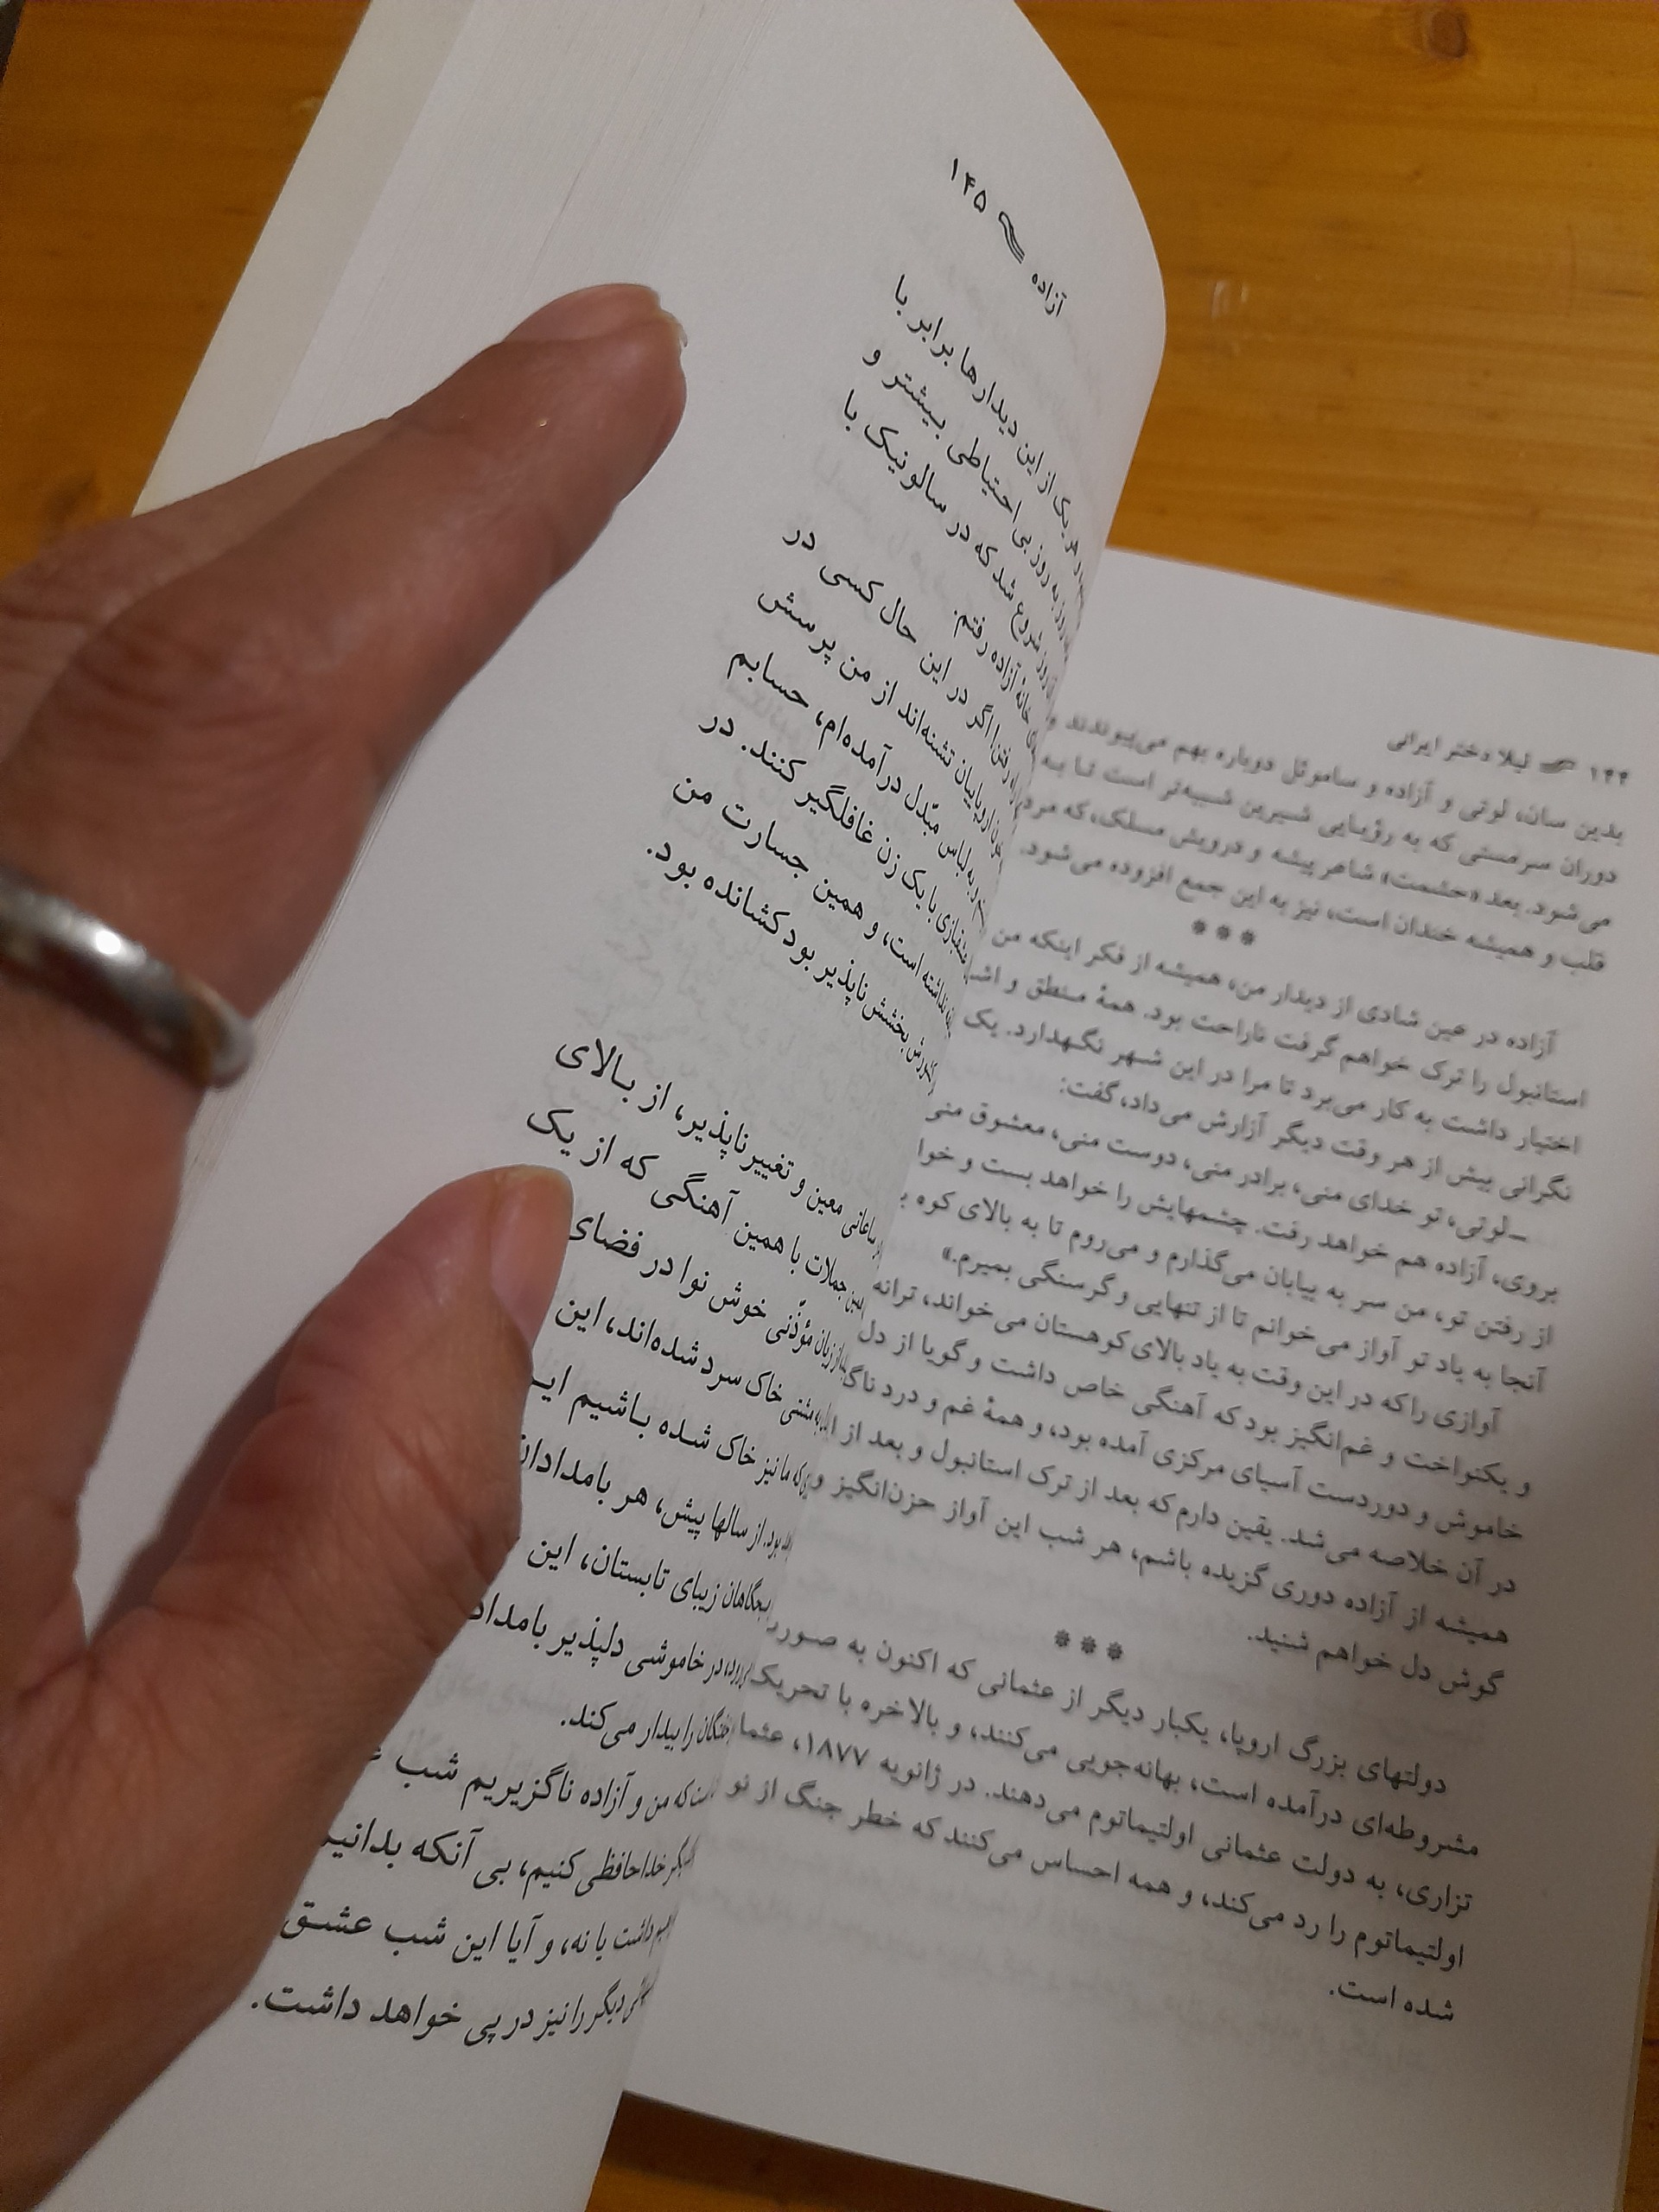 ۱۴۴ لیلا دختر ایرانی
بدین سان، لوتی و آزاده و ساموئل دوباره بهم می‌پیوندند و
دوران سرمستی که به رؤیایی شیرین شبیه‌تر است تا به
می‌شود. بعد «حشمت» شاعر پیشه و درویش مسلک، که مرد
قلب و همیشه خندان است، نیز به این جمع افزوده می‌شود.
***
آزاده در عین شادی از دیدار من، همیشه از فکر اینکه من
استانبول را ترک خواهم گرفت ناراحت بود. همهٔ منطق و
اختیار داشت به کار می‌برد تا مرا در این شهر نگهدارد. یک
نگرانی بیش از هر وقت دیگر آزارش می‌داد، گفت:
ـ لوتی، تو خدای منی، برادر منی، دوست منی، معشوق منی
بروی، آزاده هم خواهد رفت. چشمهایش را خواهد بست و
از رفتن تو، من سر به بیابان می‌گذارم و می‌روم تا به بالای کوه
آنجا به یاد تو آواز می‌خوانم تا از تنهایی و گرسنگی بمیرم.»
آوازی را که در این وقت به یاد بالای کوهستان می‌خواند، ترانه
و یکنواخت و غم‌انگیز بود که آهنگی خاص داشت و گویا از دل
خاموش و دوردست آسیای مرکزی آمده بود، و همهٔ غم و درد
در آن خلاصه می‌شد. یقین دارم که بعد از ترک استانبول و بعد از
همیشه از آزاده دوری گزیده باشم، هر شب این آواز حزن‌انگیز و
گوش دل خواهم شنید.
***
دولتهای بزرگ اروپا، یکبار دیگر از عثمانی که اکنون به
مشروطه‌ای درآمده است، بهانه‌جویی می‌کنند، و بالاخره با تحریک
تزاری، به دولت عثمانی اولتیماتوم می‌دهند. در ژانویه ۱۸۷۷،
اولتیماتوم را رد می‌کند، و همه احساس می‌کنند که خطر جنگ از نو
شده است.
آزاده ۱۴۵
یک از این دیدارها برابر با
روز به روز بی احتیاطی بیشتر و
شروع شد که در سالونیک با
خانهٔ آزاده رفتم.
اگر در این حال کسی در
اروپاییان تشنه‌اند از من پرسش
به لباس مبدّل درآمده‌ام، حسابم
با یک زن غافلگیر کنند. در
نداشته است، و همین جسارت من
بخشش‌ناپذیر بود کشانده بود.
ساعاتی معین و تغییرناپذیر، از بالای
جملات با همین آهنگی که از یک
از زبان مؤذّنی خوش نوا در فضای
مشتی خاک سرد شده‌اند، این
که ما نیز خاک شده باشیم
بود. از سالها پیش، هر
زیبای تابستان، این
در خاموشی دلپذیر
را بیدار می‌کند.
که من و آزاده ناگزیریم شب
خداحافظی کنیم، بی آنکه
داشت یا نه، و آیا این شب عشق
دیگر را نیز در پی خواهد داشت.